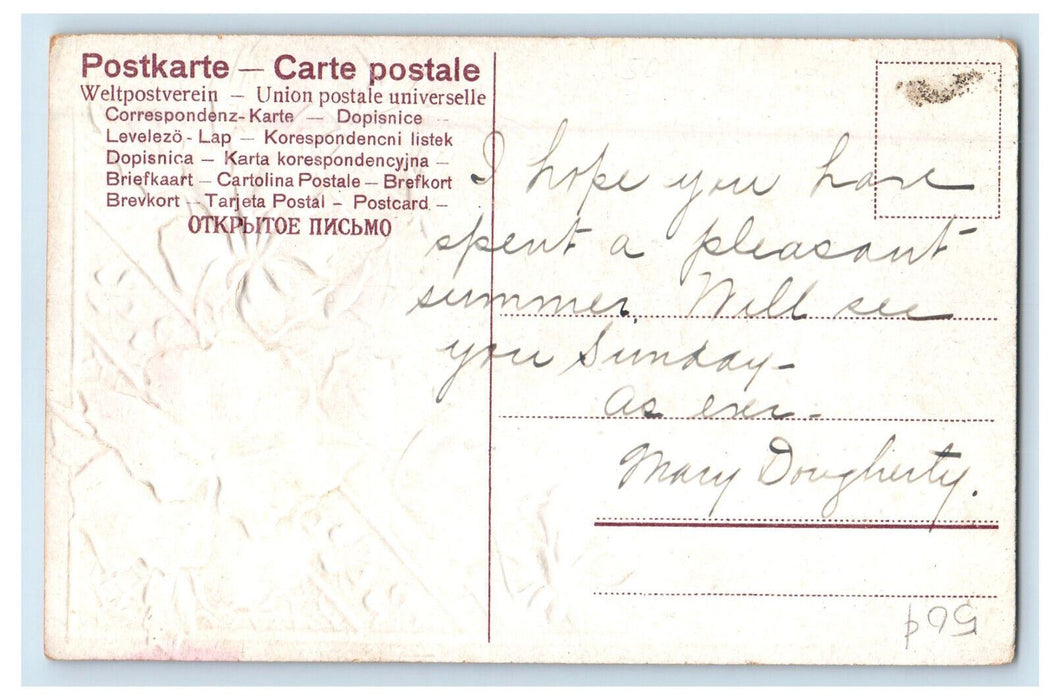 Postkarte — Carte postale
Weltpostverein – Union postale universelle
Correspondenz-Karte — Dopisnice –
Levelezö-Lap – Korespondencni listek
Dopisnica – Karta korespondencyjna –
Briefkaart – Cartolina Postale – Brefkort
Brevkort – Tarjeta Postal – Postcard –
ОТКРЫТОЕ ПИСЬМО
I hope you have
spent a pleasant
summer. Will see
you Sunday –
as ever –
Mary Dougherty.